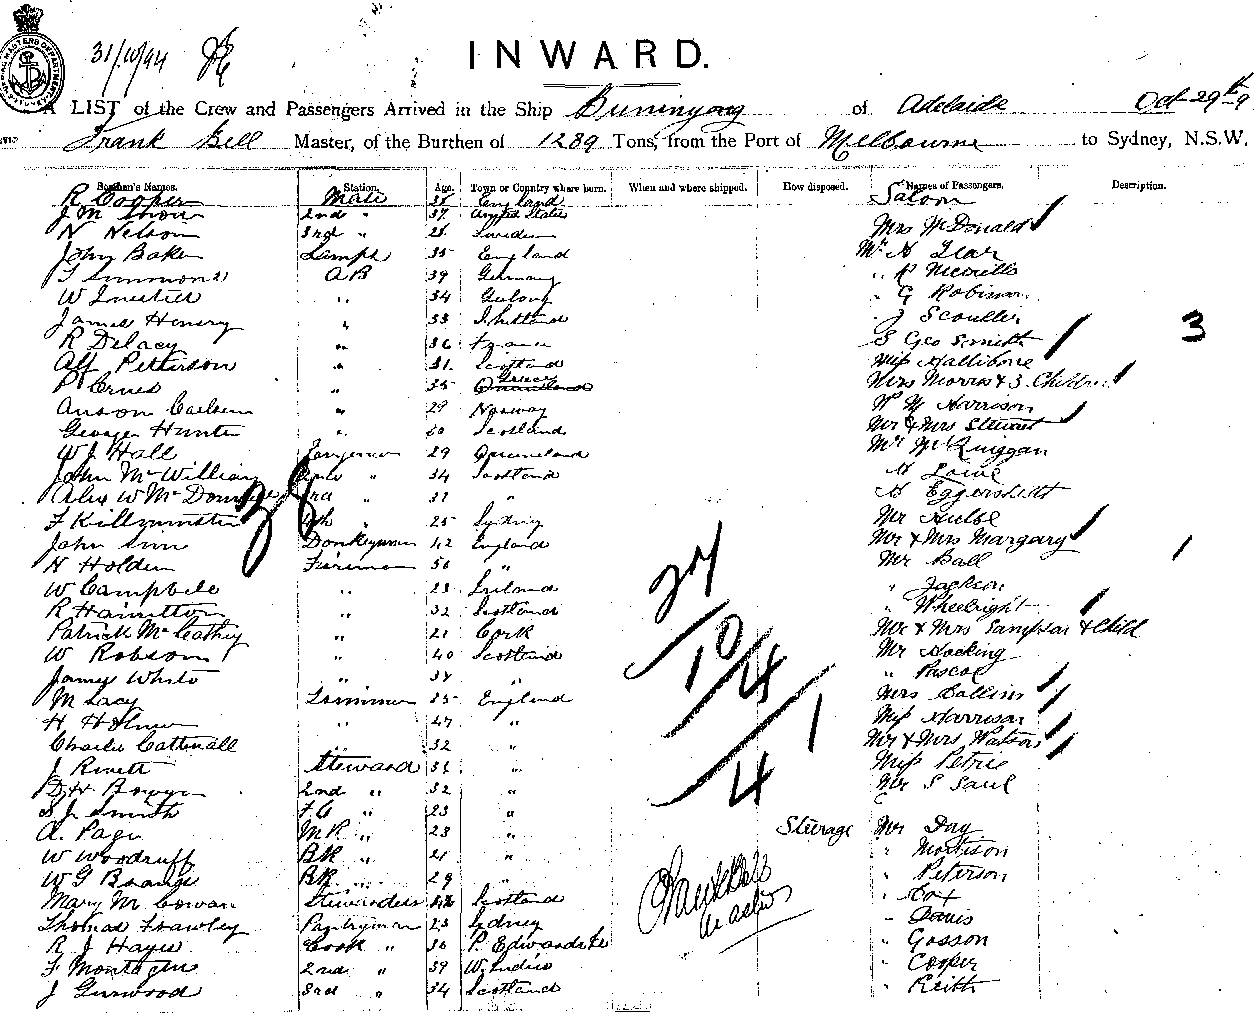 31/10/94
INWARD.
A LIST of the Crew and Passengers Arrived in the Ship Buninyong of Adelaide Oct 29th 9
Frank Bell Master, of the Burthen of 1289 Tons, from the Port of Melbourne to Sydney, N.S.W.
Seamen's Names. Station. Age. Town or Country where born. When and where shipped. How disposed. Names of Passengers. Description.
R Cooper Mate 38 England Saloon
J M Snow 2nd " 37 United States
N Nelson 3rd " 28 Sweden Mrs McDonald
John Baker Lamps 35 England Mr H
T Simmons AB 39 Germany " R
W " 34 Geelong " G Robinson
James Henery " 33 Shetland J Scouller
R Delacy " 36 France S Geo Smith 3
Alf Petterson " 31 Scotland Miss Hallibone
P " 35 Greece Mrs Morris & 3 Children
Anson Carlsen " 29 Norway W M Harrison
George Hunter " 50 Scotland Mr & Mrs Stewart
W J Hall 29 Queensland Mr McQuiggan
John McWilliam 2nd " 34 Scotland H
Alex W McDonn 3rd " 31 " H Eggerstedt
F Killminster 4th " 25 Sydney Mr Hulse
38
John Sim Donkeyman 42 England Mr & Mrs Margary
N Holden Fireman 50 " Mr Ball 1
W Campbell " 23 Ireland " Jackson
R Hamilton " 32 Scotland " Wheelright
Patrick McCathy " 21 Cork Mr & Mrs Sampson & Child
W Robson " 40 Scotland Mr Hocking
James White " 34 " " Pascoe
M Lacy Trimmer 25 England Mrs Collins
H Holmes " 47 " Miss Harrison
Charlie Cattmall " 32 " Mr & Mrs Watson
J Rivett Steward 31 " Miss Petrie
D H Bowyer 2nd " 32 " Mr S Saul
27
10/4
4/1
S J Smith F.C " 23 "
A. Page MR " 23 " Steerage Mr Day
W Woodruff BR " 21 " " Morrison
W G BR " 29 " " Peterson
Mary M Cowan Stewardess 42 Scotland " Cox
Thomas Frawley Pantryman 23 Sydney " Davis
R J Hayes Cook " 36 P. Edwards Is " Gosson
F 2nd " 39 W. Indies " Cooper
J Gurwood 3rd " 34 Scotland " Keith
Frank Bell
Master